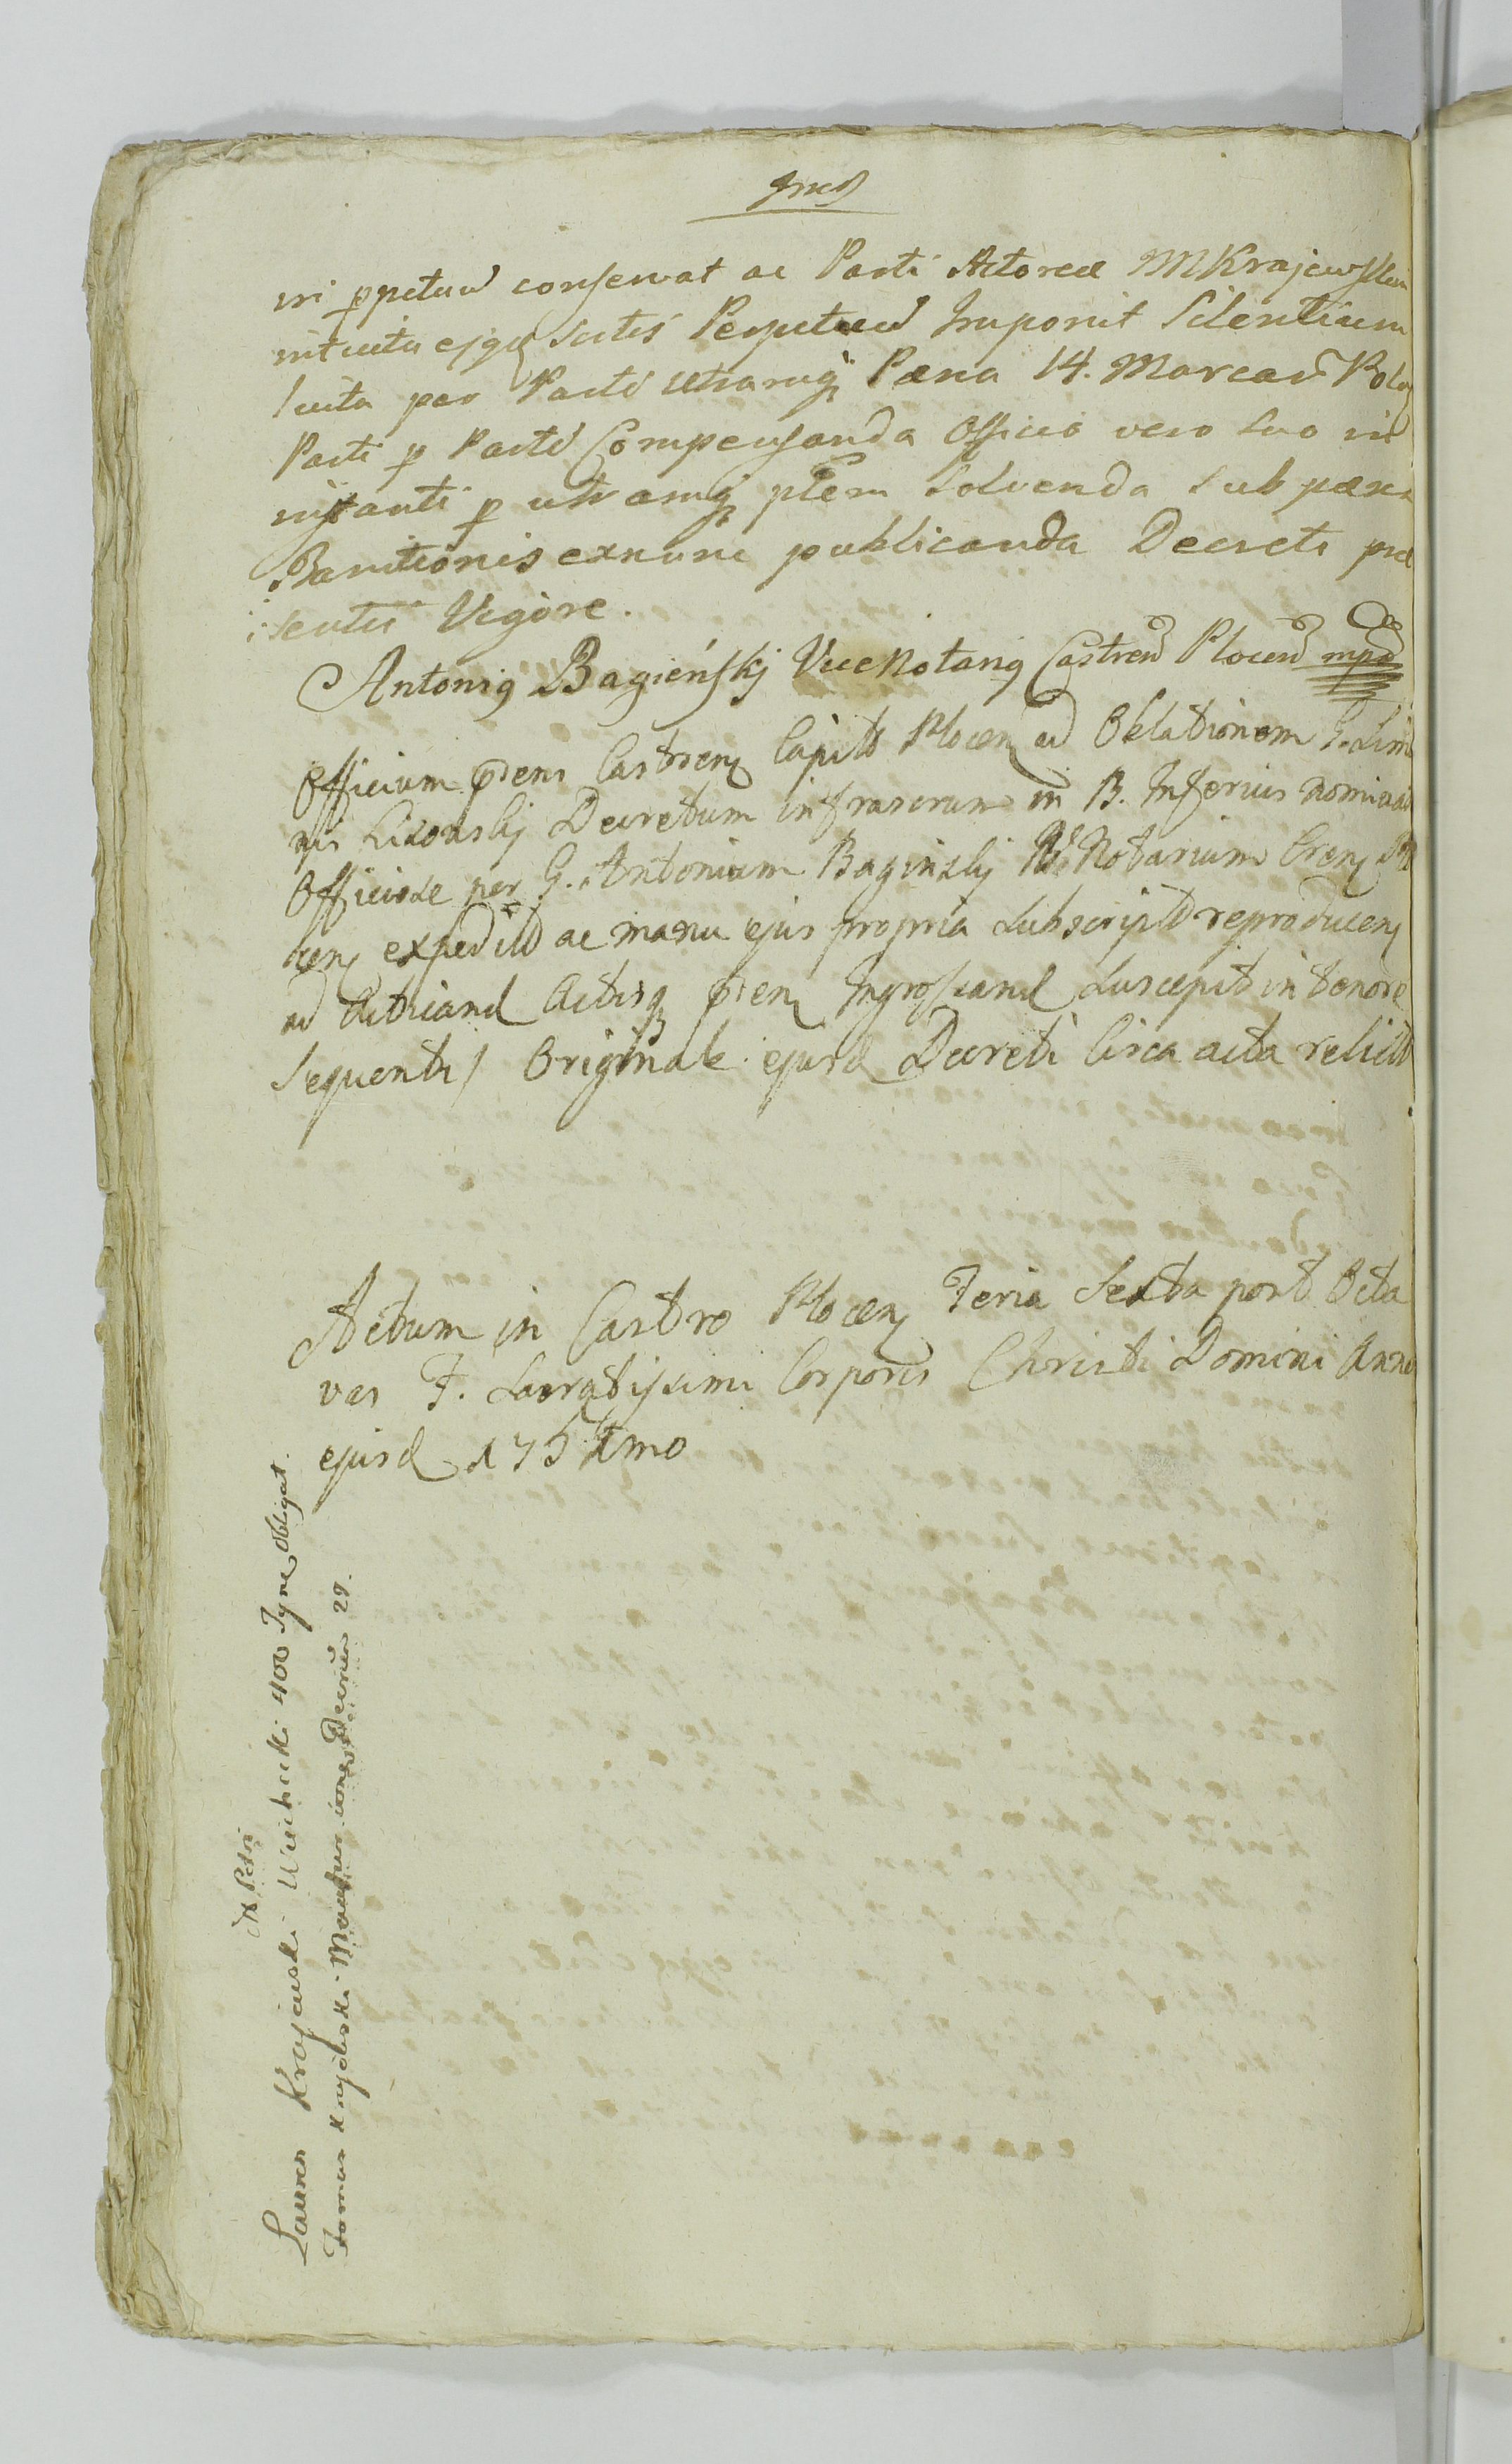 uri ppetuo conservat ac Parti Actoreæ M Krajewskim
intuitu ejqz Scitis Perpetuũ Imponit Silentium
luita per Parte utramqz Pæna 14. Marcarũ Polo
Parti p Parte Compensanda Officio vero Suo in
instanti p utramqz ptem Solvenda Sub pæna
Banitionis exnunc publicanda Decreti præ
sentis Vigore.
Antonig Bagieńskj ViceNotarig Castreñ Plocen mpa
Officium pdens Castrenz Capitt Plocenz ad Oblationem G.
Likowskj Decretum infrascrum in B. Inferius nominat
Officiose per G. Antonium Baginskj V. Notarium Crenz
cenz expeditt ac manu ejus propria Subscriptt reproducenz
ad Acticand Actisqz pdenz Ingrossand Suscepit in tenore
Sequenti / Originale ejusd Decreti Circa acta relictt
Actum in Castro Plocenz Feria Sexta post Octa
vas F. Sacratissimi Corporis Christi Domini Anno
ejusd 1751mo
Petri
Lauren Krajewski Wichicki 400 Tyne obligat.
Tomas Krajewski 29.